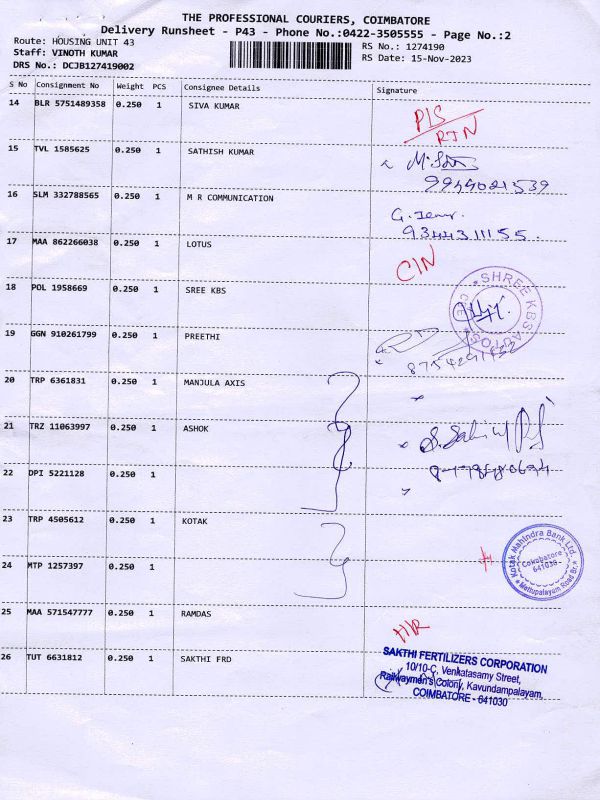 THE PROFESSIONAL COURIERS, COIMBATORE
Delivery Runsheet - P43 - Phone No.:0422-3505555 - Page No.:2
Route: HOUSING UNIT 43
Staff: VINOTH KUMAR
DRS No.: DCJB127419002
RS No.: 1274190
RS Date: 15-Nov-2023
S No Consignment No Weight PCS Consignee Details Signature
14 BLR 5751489358 0.250 1 SIVA KUMAR
RTN
15 TVL 1585625 0.250 1 SATHISH KUMAR
9944021539
16 SLM 332788565 0.250 1 M R COMMUNICATION
9344311155.
17 MAA 862266038 0.250 1 LOTUS
CIN
18 POL 1958669 0.250 1 SREE KBS
SHREE KBS AUTOS
CBE
19 GGN 910261799 0.250 1 PREETHI
20 TRP 6361831 0.250 1 MANJULA AXIS
21 TRZ 11063997 0.250 1 ASHOK
22 DPI 5221128 0.250 1
23 TRP 4505612 0.250 1 KOTAK
Kotak Mahindra Bank Ltd.
Coimbatore
641030
Mettupalayam Road Br.
24 MTP 1257397 0.250 1
25 MAA 571547777 0.250 1 RAMDAS
26 TUT 6631812 0.250 1 SAKTHI FRD
SAKTHI FERTILIZERS CORPORATION
10/10-C, Venkatasamy Street,
Railwaymen's Colony, Kavundampalayam,
COIMBATORE - 641030